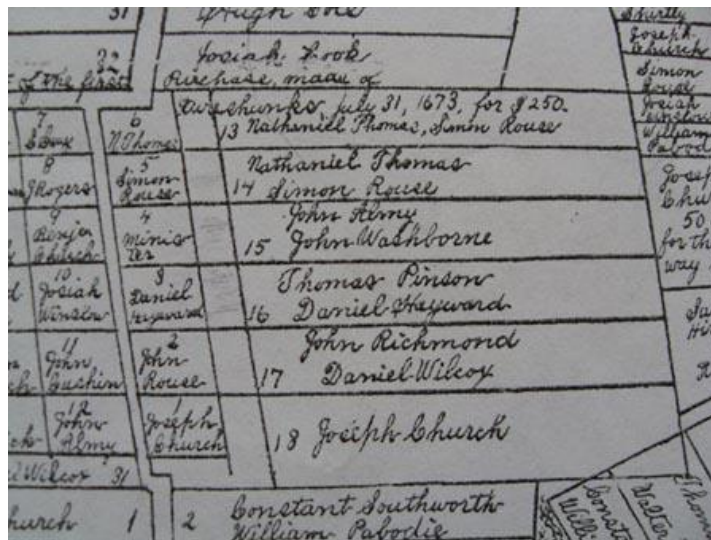 31
Hugh Cole
32
Josiah Cook
of the first
Purchase, made of
Awashunks, July 31, 1673, for $250.
13 Nathaniel Thomas, Simon Rouse
Nathaniel Thomas
14 Simon Rouse
John Almy
15 John Washborne
Thomas Pinson
16 Daniel Hayward
John Richmond
17 Daniel Wilcox
18 Joseph Church
7
8
J Rogers
9
Benja
Church
10
Josiah
Winslow
11
John
Cushin
12
John
Almy
Wilcox 31
6
N Thomas
5
Simon
Rouse
4
Minis
ter
3
Daniel
Hayward
2
John
Rouse
1
Joseph
Church
hurch 1
2 Constant Southworth
William Pabodie
Joseph
Church
Simon
Rouse
Josiah
Winslow
William
Pabod
Josep
Chur
50
for th
way
Walter
Thom
Willi